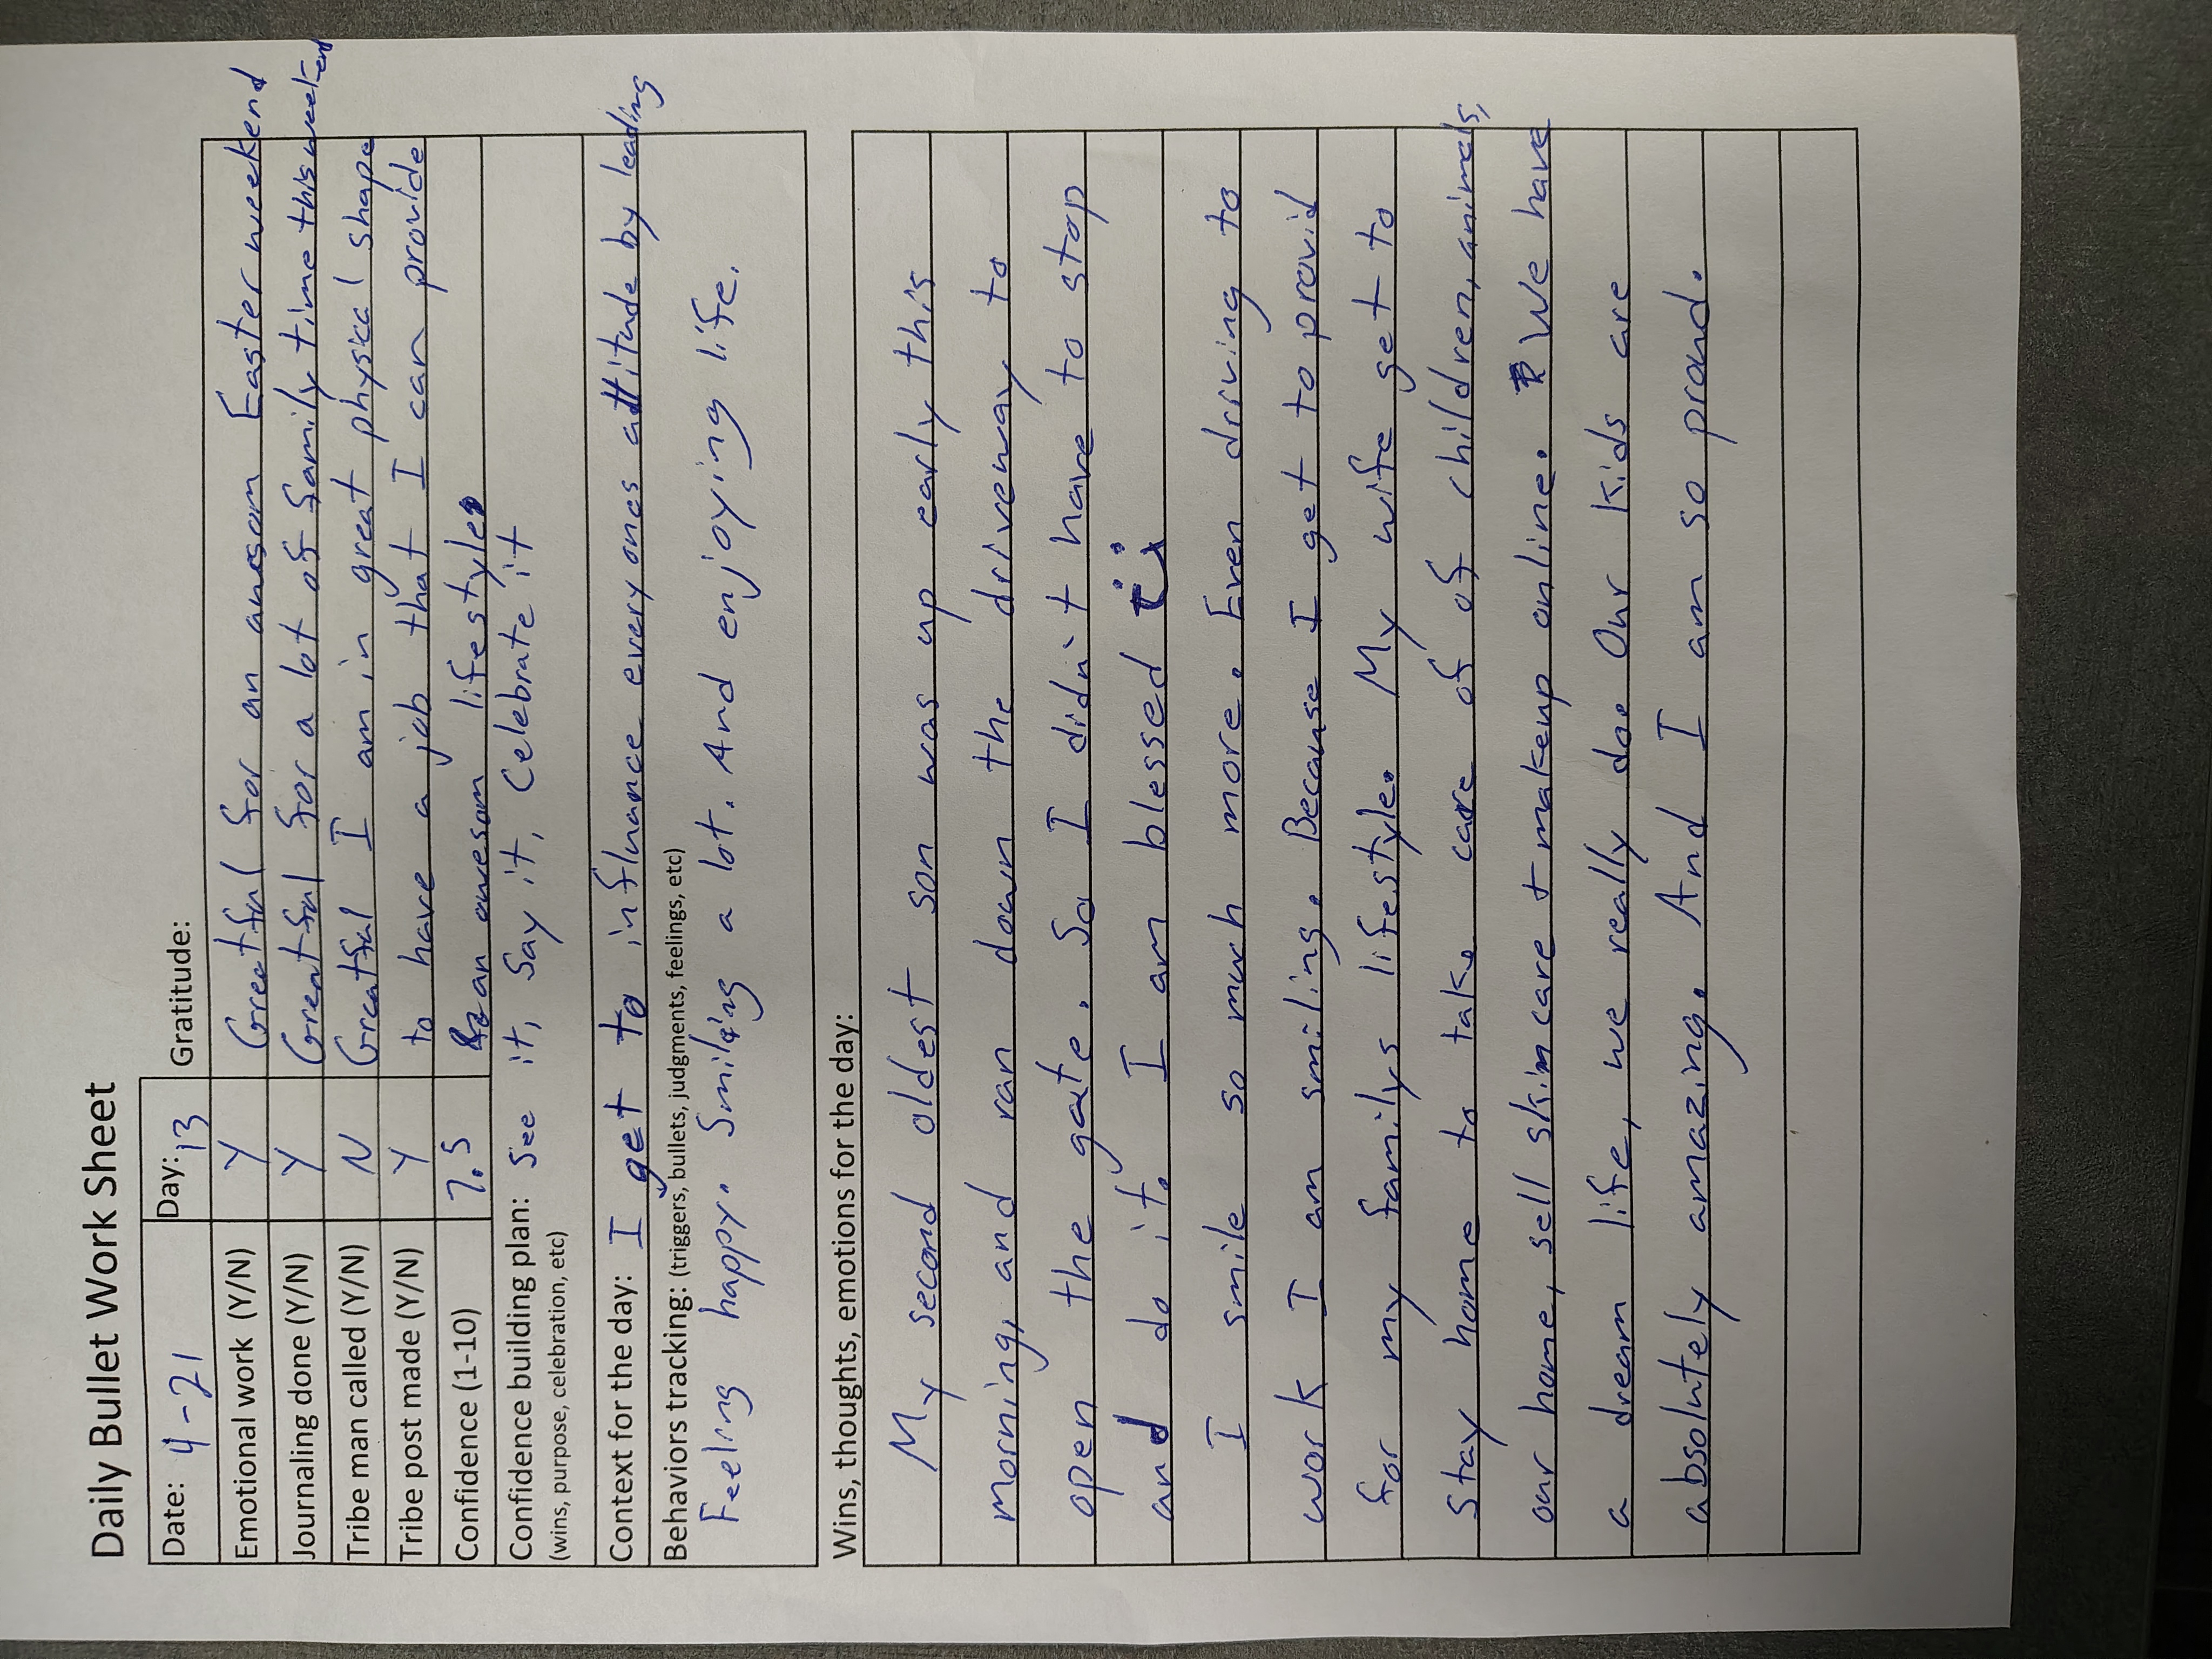 Daily Bullet Work Sheet
Date: 4-21 Day: 13 Gratitude:
Emotional work (Y/N) Y Greatful for an awesom Easter weekend
Journaling done (Y/N) Y Greatful for a lot of family time this weekend
Tribe man called (Y/N) N Greatful I am in great physical shape
Tribe post made (Y/N) Y to have a job that I can provide
Confidence (1-10) 7.5 an awesom lifestyle.
Confidence building plan: See it, Say it, Celebrate it
(wins, purpose, celebration, etc)
Context for the day: I get to influnance everyones attitude by leading
Behaviors tracking: (triggers, bullets, judgments, feelings, etc)
Feeling happy. Smiling a lot. And enjoying life.
Wins, thoughts, emotions for the day:
My second oldest son was up early this
morning, and ran down the driveway to
open the gate. So I didn't have to stop
and do it. I am blessed
I smile so much more. Even driving to
work I am smiling. Because I get to provid
for my familys lifestyle. My wife get to
Stay home to take care of of children, animals,
our home, sell skin care + makeup online. We have
a dream life, we really do. Our kids are
absolutely amazing. And I am so proud.